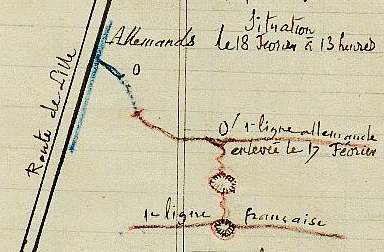 Situation
le 18 Février à 13 heures
Allemands
Route de Lille
O
O' 1e ligne allemande
enlevée le 17 Février
1e ligne française